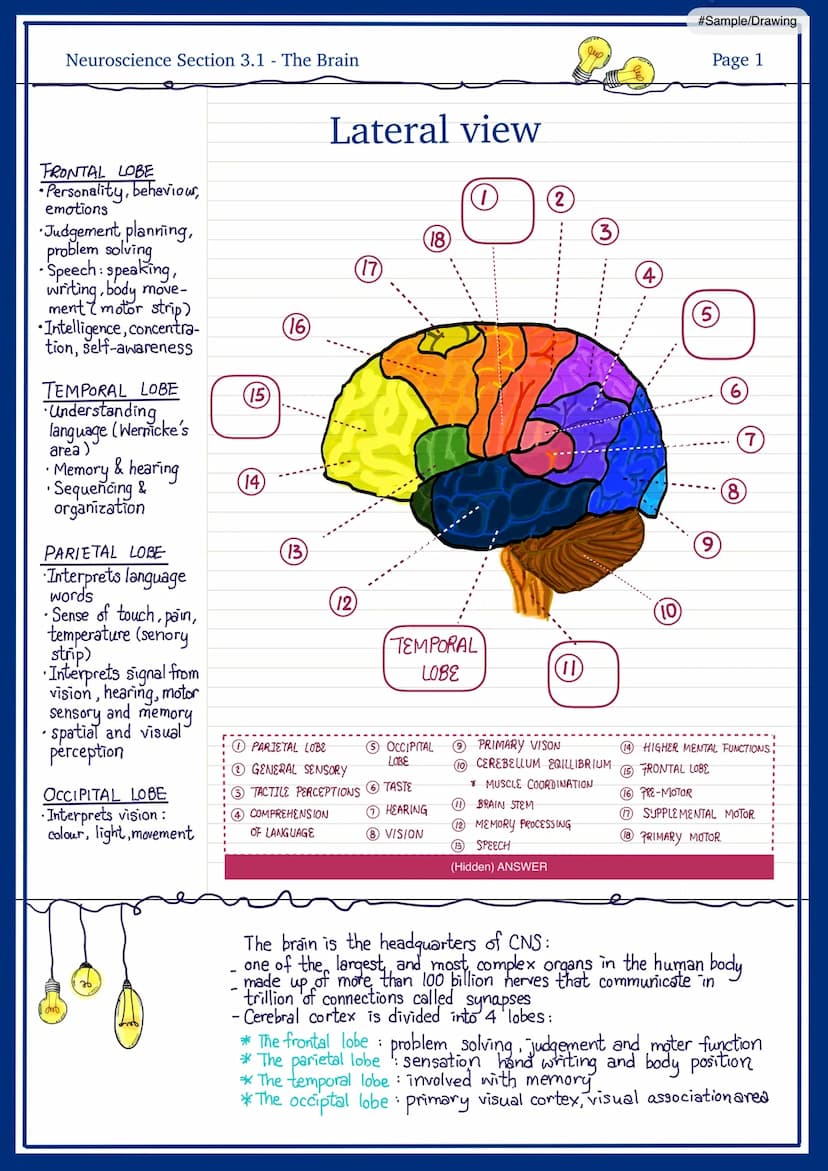 #Sample/Drawing
Neuroscience Section 3.1 - The Brain
Page 1
Lateral view
FRONTAL LOBE
·Personality, behaviour,
emotions
·Judgement planning,
problem solving
·Speech: speaking,
writing, body move-
ment (motor strip)
·Intelligence, concentra-
tion, self-awareness
TEMPORAL LOBE
·Understanding
language (Wernicke's
area)
· Memory & hearing
· Sequencing &
organization
PARIETAL LOBE
·Interprets language
words
· Sense of touch, pain,
temperature (senory
strip)
·Interprets signal from
vision, hearing, motor
sensory and memory
· spatial and visual
perception
OCCIPITAL LOBE
·Interprets vision:
colour, light, movement
1
2
3
4
5
6
7
8
9
10
11
12
13
14
15
16
17
18
TEMPORAL
LOBE
1 PARIETAL LOBE
2 GENERAL SENSORY
3 TACTILE PERCEPTIONS
4 COMPREHENSION
OF LANGUAGE
5 OCCIPITAL
LOBE
6 TASTE
7 HEARING
8 VISION
9 PRIMARY VISON
10 CEREBELLUM EQILIBRIUM
* MUSCLE COORDINATION
11 BRAIN STEM
12 MEMORY PROCESSING
13 SPEECH
14 HIGHER MENTAL FUNCTIONS
15 FRONTAL LOBE
16 PRE-MOTOR
17 SUPPLEMENTAL MOTOR
18 PRIMARY MOTOR
(Hidden) ANSWER
The brain is the headquarters of CNS:
- one of the largest and most complex organs in the human body
- made up of more than 100 billion nerves that communicate in
- trillion of connections called synapses
- Cerebral cortex is divided into 4 lobes:
* The frontal lobe : problem solving, judgement and moter function
* The parietal lobe : sensation hand writing and body position
* The temporal lobe : involved with memory
* The occiptal lobe : primary visual cortex, visual association area